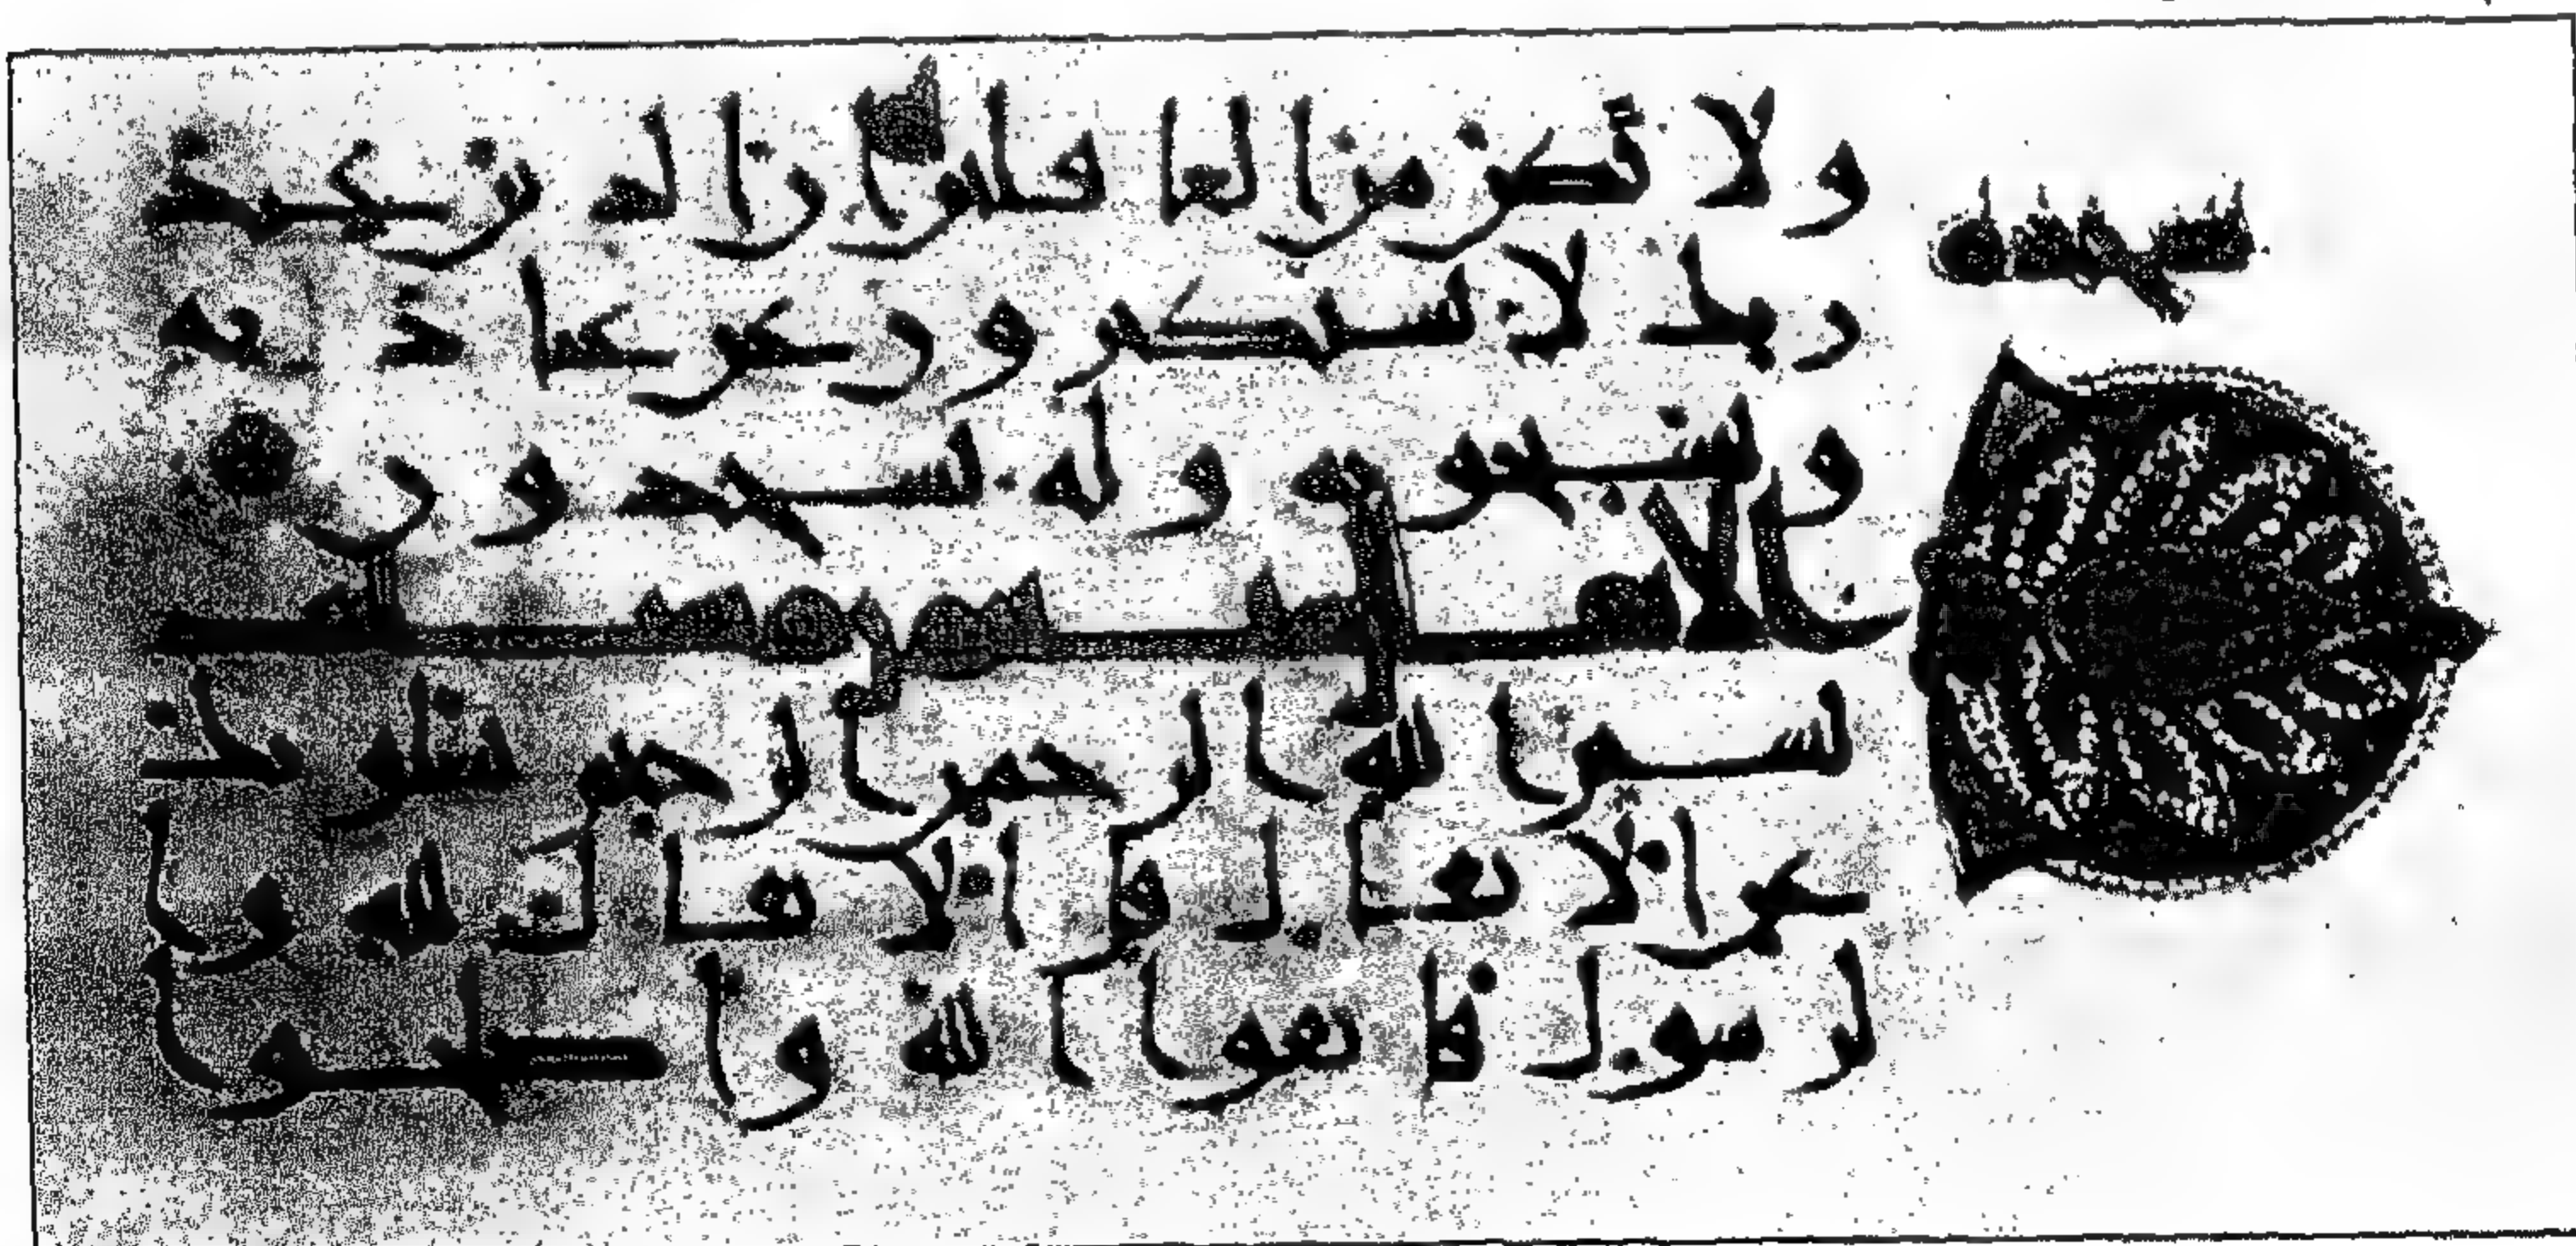 سجدة
ولا تكن من الغفلين ان الذين عند
ربك لا يستكبرون عن عبادته
ويسبحونه وله يسجدون
الانفل
بسم الله الرحمن الرحيم يسلونك
عن الانفل قل الانفل لله وا
لرسول فاتقوا الله واصلحوا